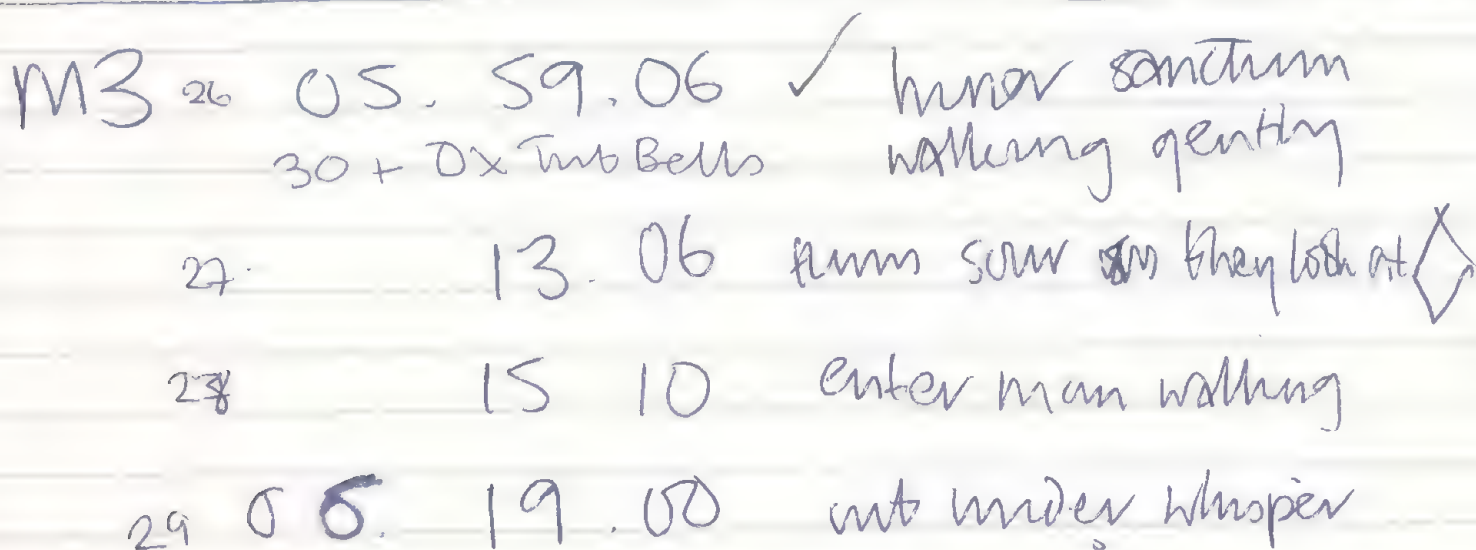 M3 26 05. 59.06 ✓ Inner sanctum
30 + Ox Tub Bells walking gently
27. 13. 06 they look at
28 15 10 enter man walking
29 06. 19.00 out under whisper